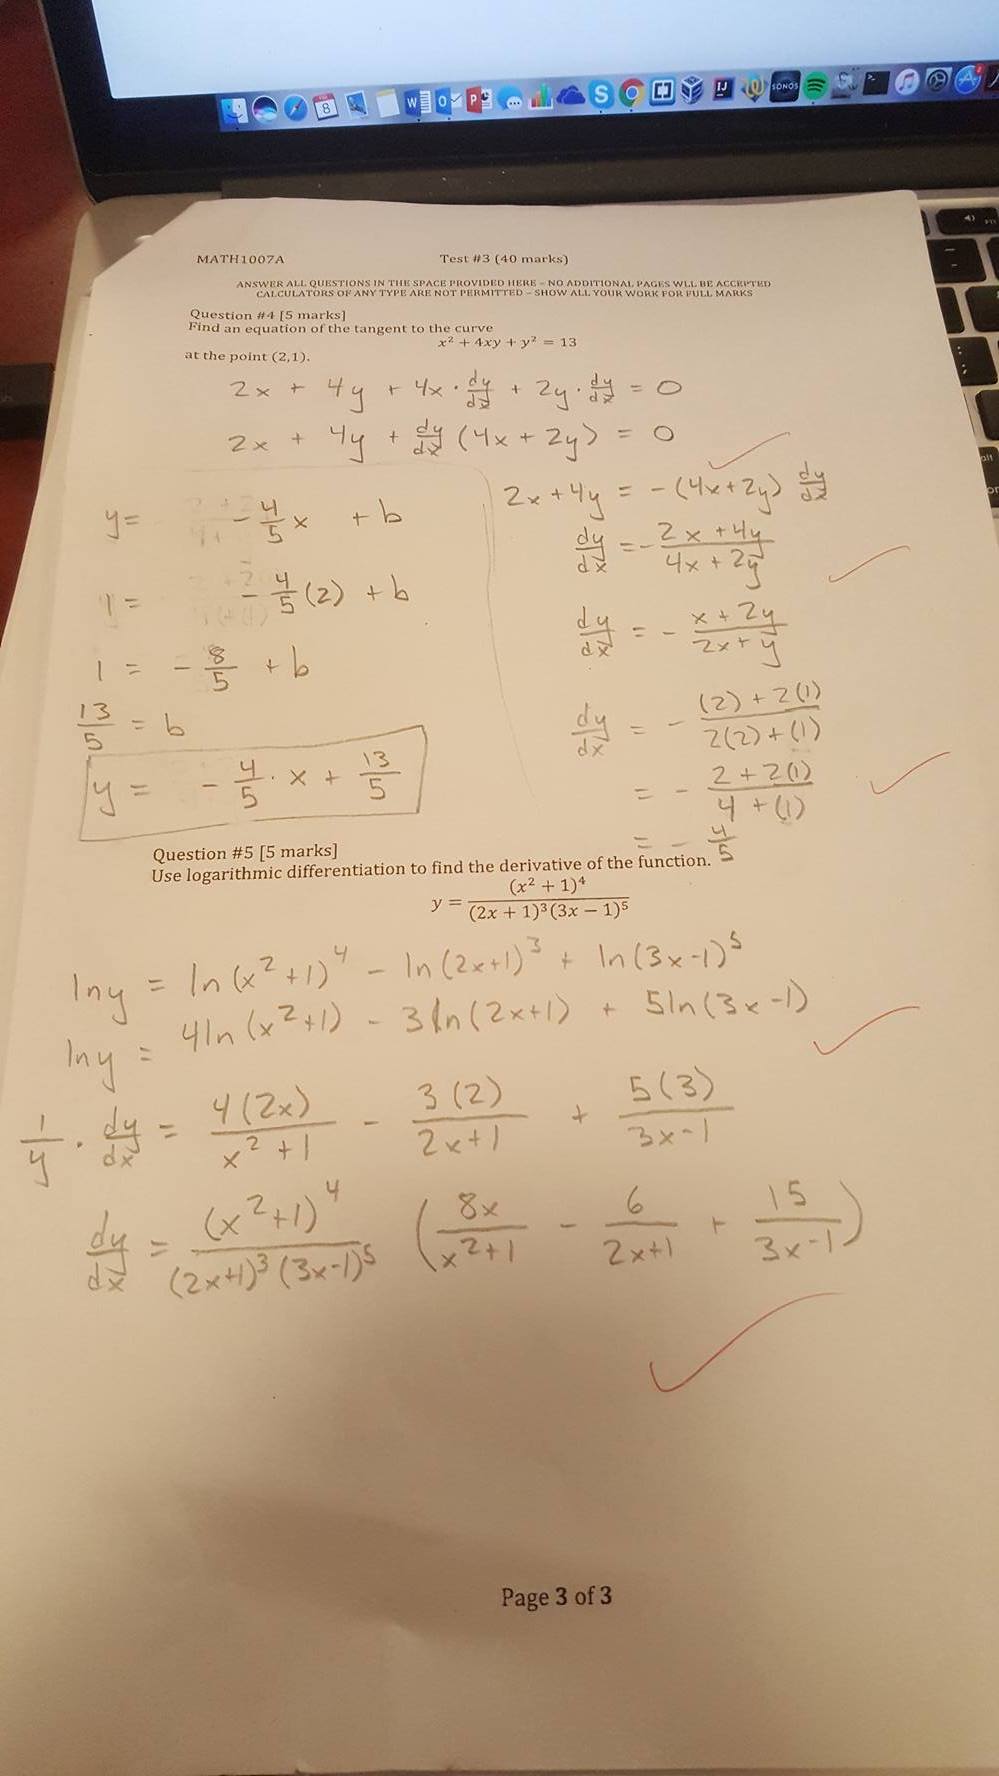 8
W
O
P
S
IJ
SONOS
MATH1007A Test #3 (40 marks)
ANSWER ALL QUESTIONS IN THE SPACE PROVIDED HERE – NO ADDITIONAL PAGES WLL BE ACCEPTED
CALCULATORS OF ANY TYPE ARE NOT PERMITTED – SHOW ALL YOUR WORK FOR FULL MARKS
Question #4 [5 marks]
Find an equation of the tangent to the curve
x² + 4xy + y² = 13
at the point (2,1).
2x + 4y + 4x · dy/dx + 2y · dy/dx = 0
2x + 4y + dy/dx (4x + 2y) = 0
2x + 4y = -(4x+2y) dy/dx
dy/dx = - (2x + 4y)/(4x + 2y)
dy/dx = - (x + 2y)/(2x + y)
dy/dx = - ((2) + 2(1))/(2(2) + (1))
= - (2 + 2(1))/(4 + (1))
= - 4/5
y = - 4/5 x + b
1 = - 4/5 (2) + b
1 = - 8/5 + b
13/5 = b
y = - 4/5 · x + 13/5
Question #5 [5 marks]
Use logarithmic differentiation to find the derivative of the function.
y = (x² + 1)⁴/((2x + 1)³(3x − 1)⁵)
lny = ln(x²+1)⁴ - ln(2x+1)³ + ln(3x-1)⁵
lny = 4ln(x²+1) - 3ln(2x+1) + 5ln(3x-1)
1/y · dy/dx = 4(2x)/(x²+1) - 3(2)/(2x+1) + 5(3)/(3x-1)
dy/dx = (x²+1)⁴/((2x+1)³(3x-1)⁵) (8x/(x²+1) - 6/(2x+1) + 15/(3x-1))
Page 3 of 3